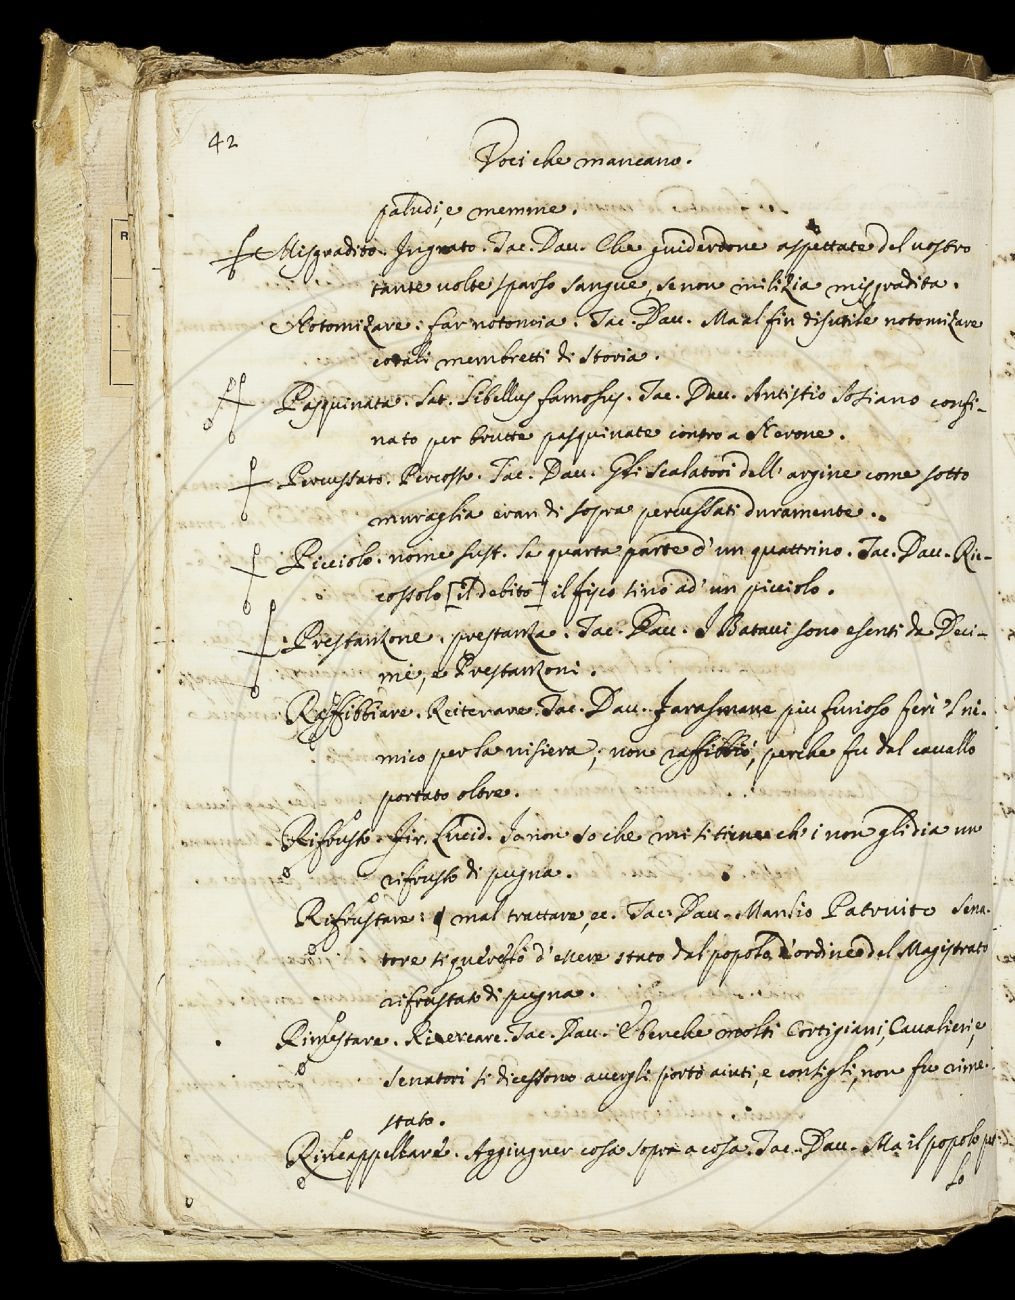 42
Voci che mancano.
paludi, e memme.
Misgradito. Ingrato. Tac. Dav. Che guiderdone aspettate del vostro
tante volte sparso sangue, se non milizia misgradita.
Notomizare. far notomia. Tac. Dav. Ma al fin disutile notomizare
cotali membretti di storia.
Pasquinata. Lat. Libellus famosus. Tac. Dav. Antistio Sosiano confi-
nato per brutte pasquinate contro a Nerone.
Percussato. Percosso. Tac. Dav. Gli scalatori dell' argine come sotto
muraglia eran di sopra percussati duramente.
Picciolo. nome sust. la quarta parte d' un quattrino. Tac. Dav. Ris-
cossolo [il debito] il fisco sino ad' un picciolo.
Prestanzone. prestanza. Tac. Dav. I Batavi sono esenti da Deci-
me, e Prestanzoni.
Raffibbiare. Reiterare. Tac. Dav. Farasmane piu furioso ferì 'l ni-
mico per la visiera; non raffibbiò, perche fu dal cavallo
portato oltre.
Rifrusto. Fir. Lucid. Io non so che mi ti tiene ch' i non gli dia un
rifrusto di pugna.
Rifrustare: mal trattare, ec. Tac. Dav. Manlio Patruito Sena-
tore si querelò d' essere stato dal popolo, d'ordine del Magistrato
rifrustato di pugna.
Rimestare. Ricercare. Tac. Dav. E benche molti Cortigiani, Cavalieri, e
senatori si dicessono avergli porto aiuti, e consigli, non fu rime-
stato.
Rincappellare. Aggiugner cosa sopra a cosa. Tac. Dav. Ma il popolo per
lo